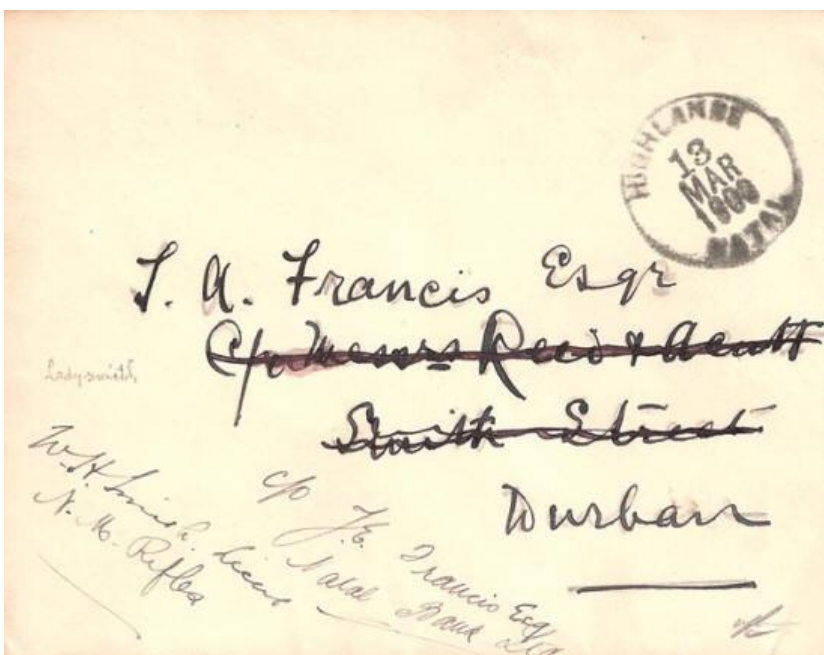 HIGHLANDS
13
MAR
1900
NATAL
T. A. Francis Esqr
C/o Messrs Reid & Acutt
Smith Street
Durban
Ladysmith
W. H. Smith. Lieut
N. M. Rifles
c/o J. E. Francis Esq
Natal Bank Ltd